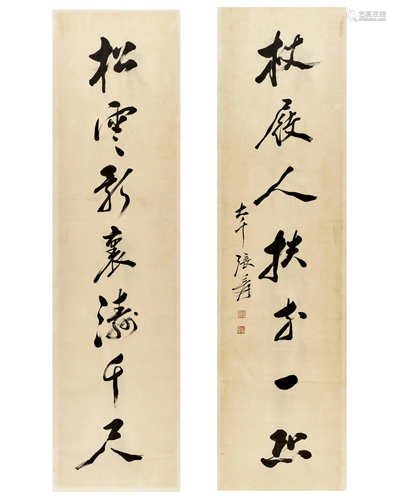 杖履人扶一
大千張爰
松雲影裏濤千尺
艺典中国